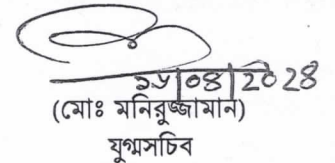 ১৬|০৪|২০২৪
(মোঃ মনিরুজ্জামান)
যুগ্মসচিব